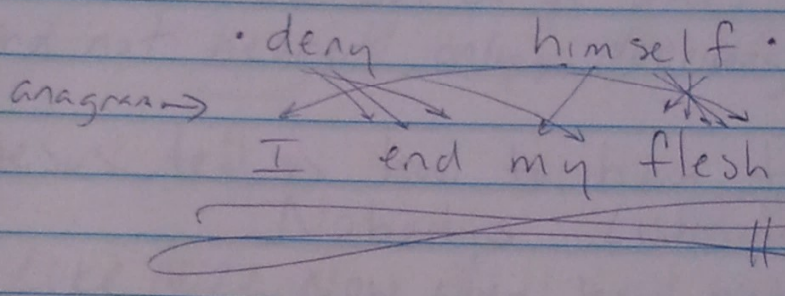 · deny himself ·
anagram →
I end my flesh